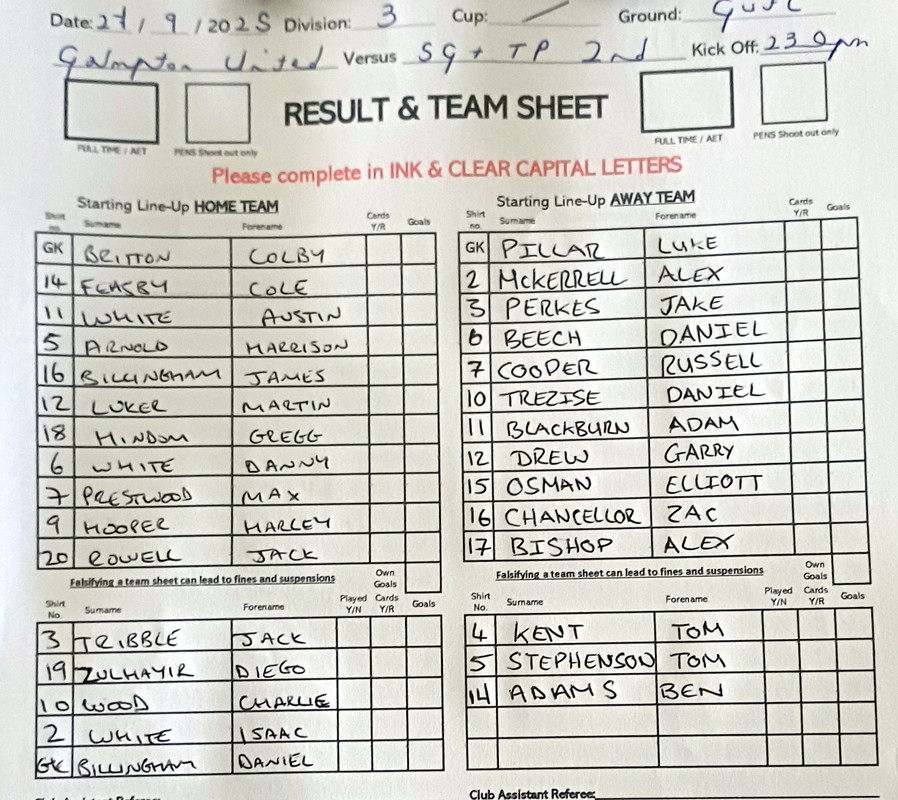 Date: 27 / 9 / 2025 Division: 3 Cup: Ground:
Galmpton United Versus SG + TP 2nd Kick Off: 230pm
RESULT & TEAM SHEET
FULL TIME / AET PENS Shoot out only FULL TIME / AET PENS Shoot out only
Please complete in INK & CLEAR CAPITAL LETTERS
Starting Line-Up HOME TEAM
Shirt no. Surname Forename Cards Y/R Goals
GK BRITTON COLBY
14 FEASBY COLE
11 WHITE AUSTIN
5 ARNOLD HARRISON
16 BILLINGHAM JAMES
12 LUKER MARTIN
18 HINDOM GREGG
6 WHITE DANNY
7 PRESTWOOD MAX
9 HOOPER HARLEY
20 ROWELL JACK
Falsifying a team sheet can lead to fines and suspensions Own Goals
Shirt No. Surname Forename Played Y/N Cards Y/R Goals
3 TRIBBLE JACK
19 ZULHAYIR DIEGO
10 WOOD CHARLIE
2 WHITE ISAAC
GK BILLINGHAM DANIEL
Starting Line-Up AWAY TEAM
Shirt no. Surname Forename Cards Y/R Goals
GK PILLAR LUKE
2 McKERRELL ALEX
3 PERKES JAKE
6 BEECH DANIEL
7 COOPER RUSSELL
10 TREZISE DANIEL
11 BLACKBURN ADAM
12 DREW GARRY
15 OSMAN ELLIOTT
16 CHANCELLOR ZAC
17 BISHOP ALEX
Falsifying a team sheet can lead to fines and suspensions Own Goals
Shirt No. Surname Forename Played Y/N Cards Y/R Goals
4 KENT TOM
5 STEPHENSON TOM
14 ADAMS BEN
Club Assistant Referee: